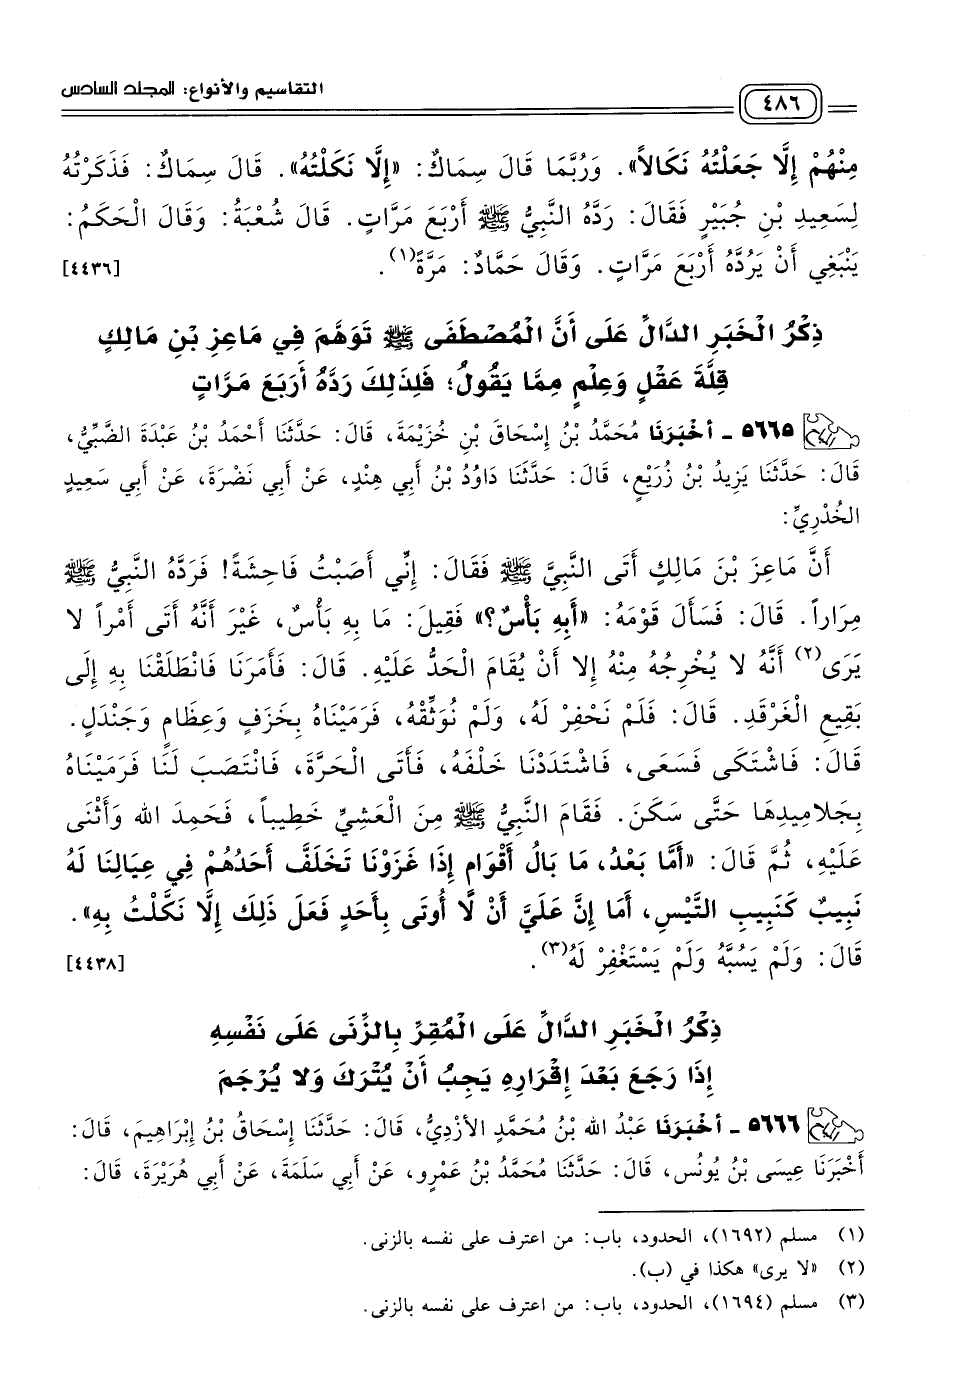 التقاسيم والأنواع: المجلد السادس
٤٨٦
مِنْهُمْ إِلَّا جَعَلْتُهُ نَكَالاً». وَرُبَّمَا قَالَ سِمَاكٌ: «إِلَّا نَكَلْتُهُ». قَالَ سِمَاكٌ: فَذَكَرْتُهُ
لِسَعِيدِ بْنِ جُبَيْرٍ فَقَالَ: رَدَّهُ النَّبِيُّ ﷺ أَرْبَعَ مَرَّاتٍ. قَالَ شُعْبَةُ: وَقَالَ الْحَكَمُ:
يَنْبَغِي أَنْ يَرُدَّهُ أَرْبَعَ مَرَّاتٍ. وَقَالَ حَمَّادٌ: مَرَّةً(١). [٤٤٣٦]
ذِكْرُ الْخَبَرِ الدَّالِّ عَلَى أَنَّ الْمُصْطَفَى ﷺ تَوَهَّمَ فِي مَاعِزِ بْنِ مَالِكٍ
قِلَّةَ عَقْلٍ وَعِلْمٍ مِمَّا يَقُولُ؛ فَلِذَلِكَ رَدَّهُ أَرَبَعَ مَرَّاتٍ
٥٦٦٥ - أَخْبَرَنَا مُحَمَّدُ بْنُ إِسْحَاقَ بْنِ خُزَيْمَةَ، قَالَ: حَدَّثَنَا أَحْمَدُ بْنُ عَبْدَةَ الضَّبِّيُّ،
قَالَ: حَدَّثَنَا يَزِيدُ بْنُ زُرَيْعٍ، قَالَ: حَدَّثَنَا دَاوُدُ بْنُ أَبِي هِنْدٍ، عَنْ أَبِي نَضْرَةَ، عَنْ أَبِي سَعِيدٍ
الْخُدْرِيِّ:
أَنَّ مَاعِزَ بْنَ مَالِكٍ أَتَى النَّبِيَّ ﷺ فَقَالَ: إِنِّي أَصَبْتُ فَاحِشَةً! فَرَدَّهُ النَّبِيُّ ﷺ
مِرَاراً. قَالَ: فَسَأَلَ قَوْمَهُ: «أَبِهِ بَأْسٌ؟» فَقِيلَ: مَا بِهِ بَأْسٌ، غَيْرَ أَنَّهُ أَتَى أَمْراً لا
يَرَى(٢) أَنَّهُ لا يُخْرِجُهُ مِنْهُ إلا أَنْ يُقَامَ الْحَدُّ عَلَيْهِ. قَالَ: فَأَمَرَنَا فَانْطَلَقْنَا بِهِ إِلَى
بَقِيعِ الْغَرْقَدِ. قَالَ: فَلَمْ نَحْفِرْ لَهُ، وَلَمْ نُوَثِّقْهُ، فَرَمَيْنَاهُ بِخَزَفٍ وَعِظَامٍ وَجَنْدَلٍ.
قَالَ: فَاشْتَكَى فَسَعَى، فَاشْتَدَدْنَا خَلْفَهُ، فَأَتَى الْحَرَّةَ، فَانْتَصَبَ لَنَا فَرَمَيْنَاهُ
بِجَلامِيدِهَا حَتَّى سَكَنَ. فَقَامَ النَّبِيُّ ﷺ مِنَ الْعَشِيِّ خَطِيباً، فَحَمِدَ الله وَأَثْنَى
عَلَيْهِ، ثُمَّ قَالَ: «أَمَّا بَعْدُ، مَا بَالُ أَقْوَامٍ إِذَا غَزَوْنَا تَخَلَّفَ أَحَدُهُمْ فِي عِيَالِنَا لَهُ
نَبِيبٌ كَنَبِيبِ التَّيْسِ، أَمَا إِنَّ عَلَيَّ أَنْ لَّا أُوتَى بِأَحَدٍ فَعَلَ ذَلِكَ إِلَّا نَكَّلْتُ بِهِ».
قَالَ: وَلَمْ يَسُبَّهُ وَلَمْ يَسْتَغْفِرْ لَهُ(٣). [٤٤٣٨]
ذِكْرُ الْخَبَرِ الدَّالِّ عَلَى الْمُقِرِّ بِالزِّنَى عَلَى نَفْسِهِ
إِذَا رَجَعَ بَعْدَ إِقْرَارِهِ يَجِبُ أَنْ يُتْرَكَ وَلا يُرْجَمَ
٥٦٦٦ - أَخْبَرَنَا عَبْدُ الله بْنُ مُحَمَّدٍ الأَزْدِيُّ، قَالَ: حَدَّثَنَا إِسْحَاقُ بْنُ إِبْرَاهِيمَ، قَالَ:
أَخْبَرَنَا عِيسَى بْنُ يُونُسَ، قَالَ: حَدَّثَنَا مُحَمَّدُ بْنُ عَمْرٍو، عَنْ أَبِي سَلَمَةَ، عَنْ أَبِي هُرَيْرَةَ، قَالَ:
(١) مسلم (١٦٩٢)، الحدود، باب: من اعترف على نفسه بالزنى.
(٢) «لا يرى» هكذا في (ب).
(٣) مسلم (١٦٩٤)، الحدود، باب: من اعترف على نفسه بالزنى.